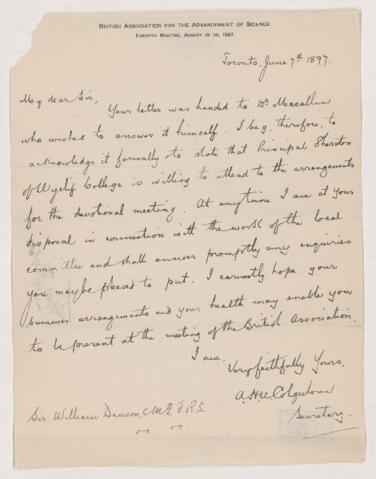 BRITISH ASSOCIATION FOR THE ADVANCEMENT OF SCIENCE
TORONTO MEETING, AUGUST 18-25, 1897.
Toronto, June 7th 1897.
My dear Sir,
Your letter was handed to Dr Macallum
who wishes to answer it himself. I beg, therefore, to
acknowledge it formally & to state that Principal Sheraton
of Wyclif College is willing to attend to the arrangements
for the devotional meeting. At any time I am at your
disposal in connection with the work of the local
committee and shall answer promptly any enquiries
you may be pleased to put. I earnestly hope your
summer arrangements and your health may enable you
to be present at the meeting of the British Association.
I am.
Very faithfully Yours.
A.H.U. Colquhoun
Secretary.
Sir William Dawson, C.M.G. F.R.S.